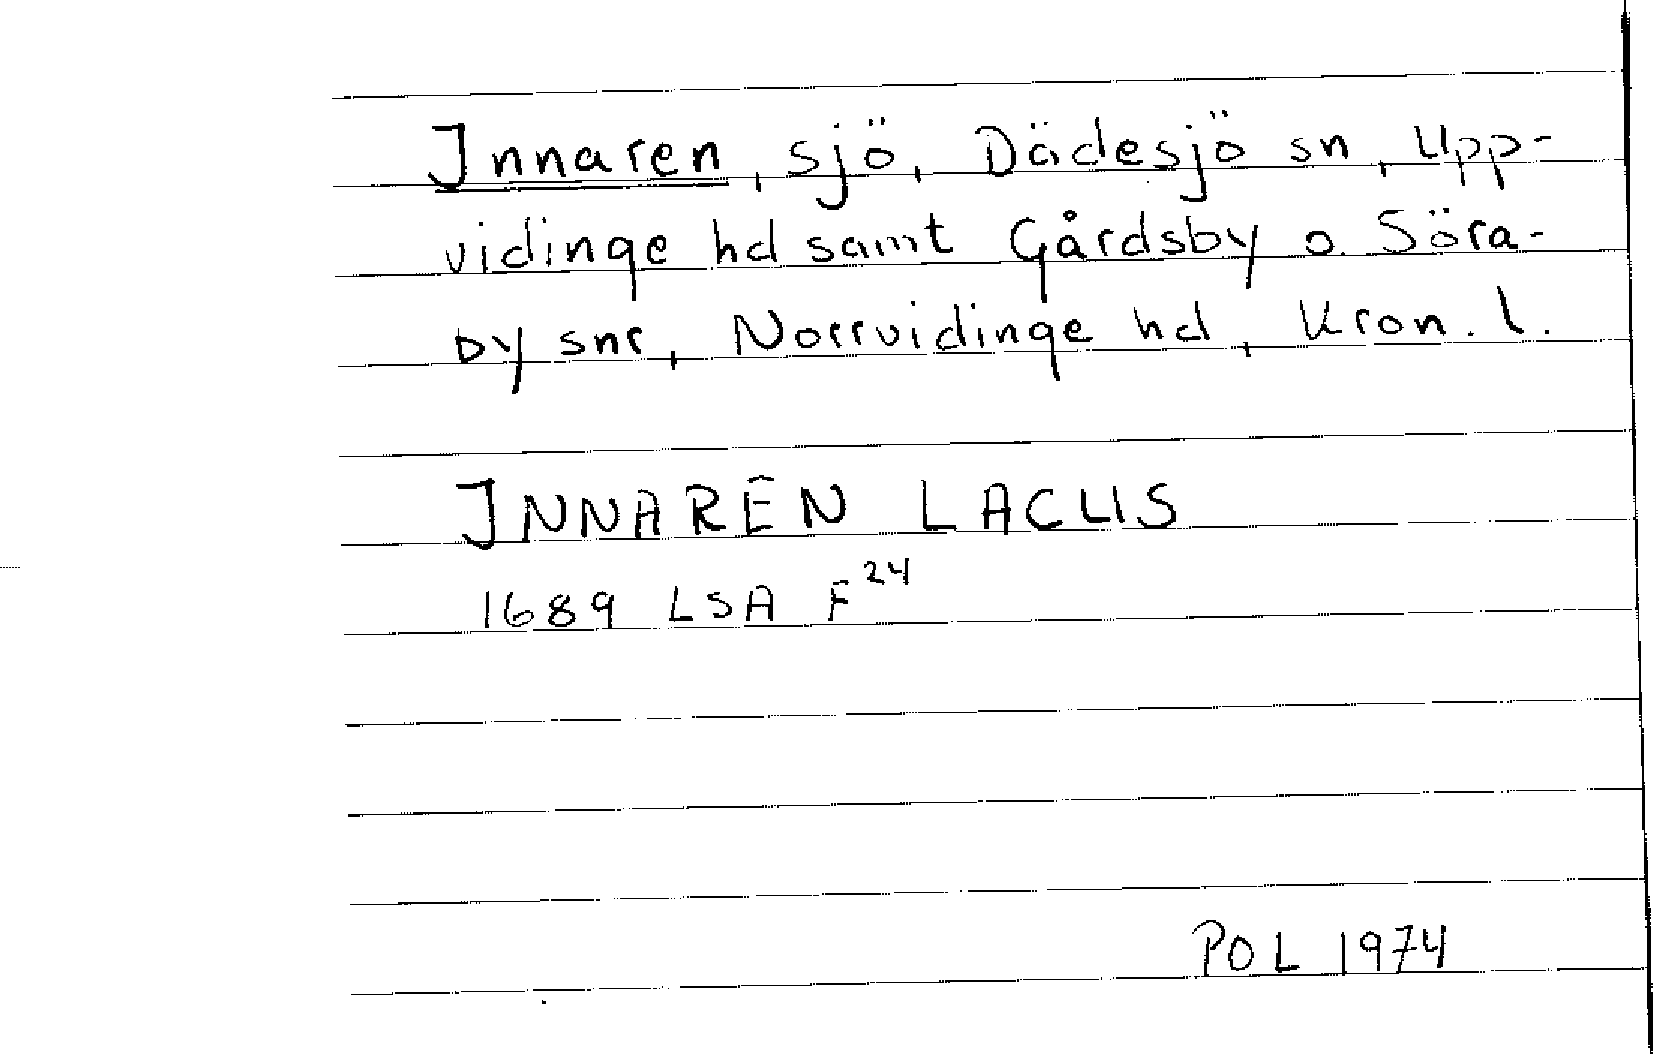 Innaren, sjö, Dädesjö sn, Upp-
vidinge hd samt Gårdsby o. Söra-
by snr, Norrvidinge hd, Kron. l.
INNAREN LACUS
1689 LSA F 24
POL 1974